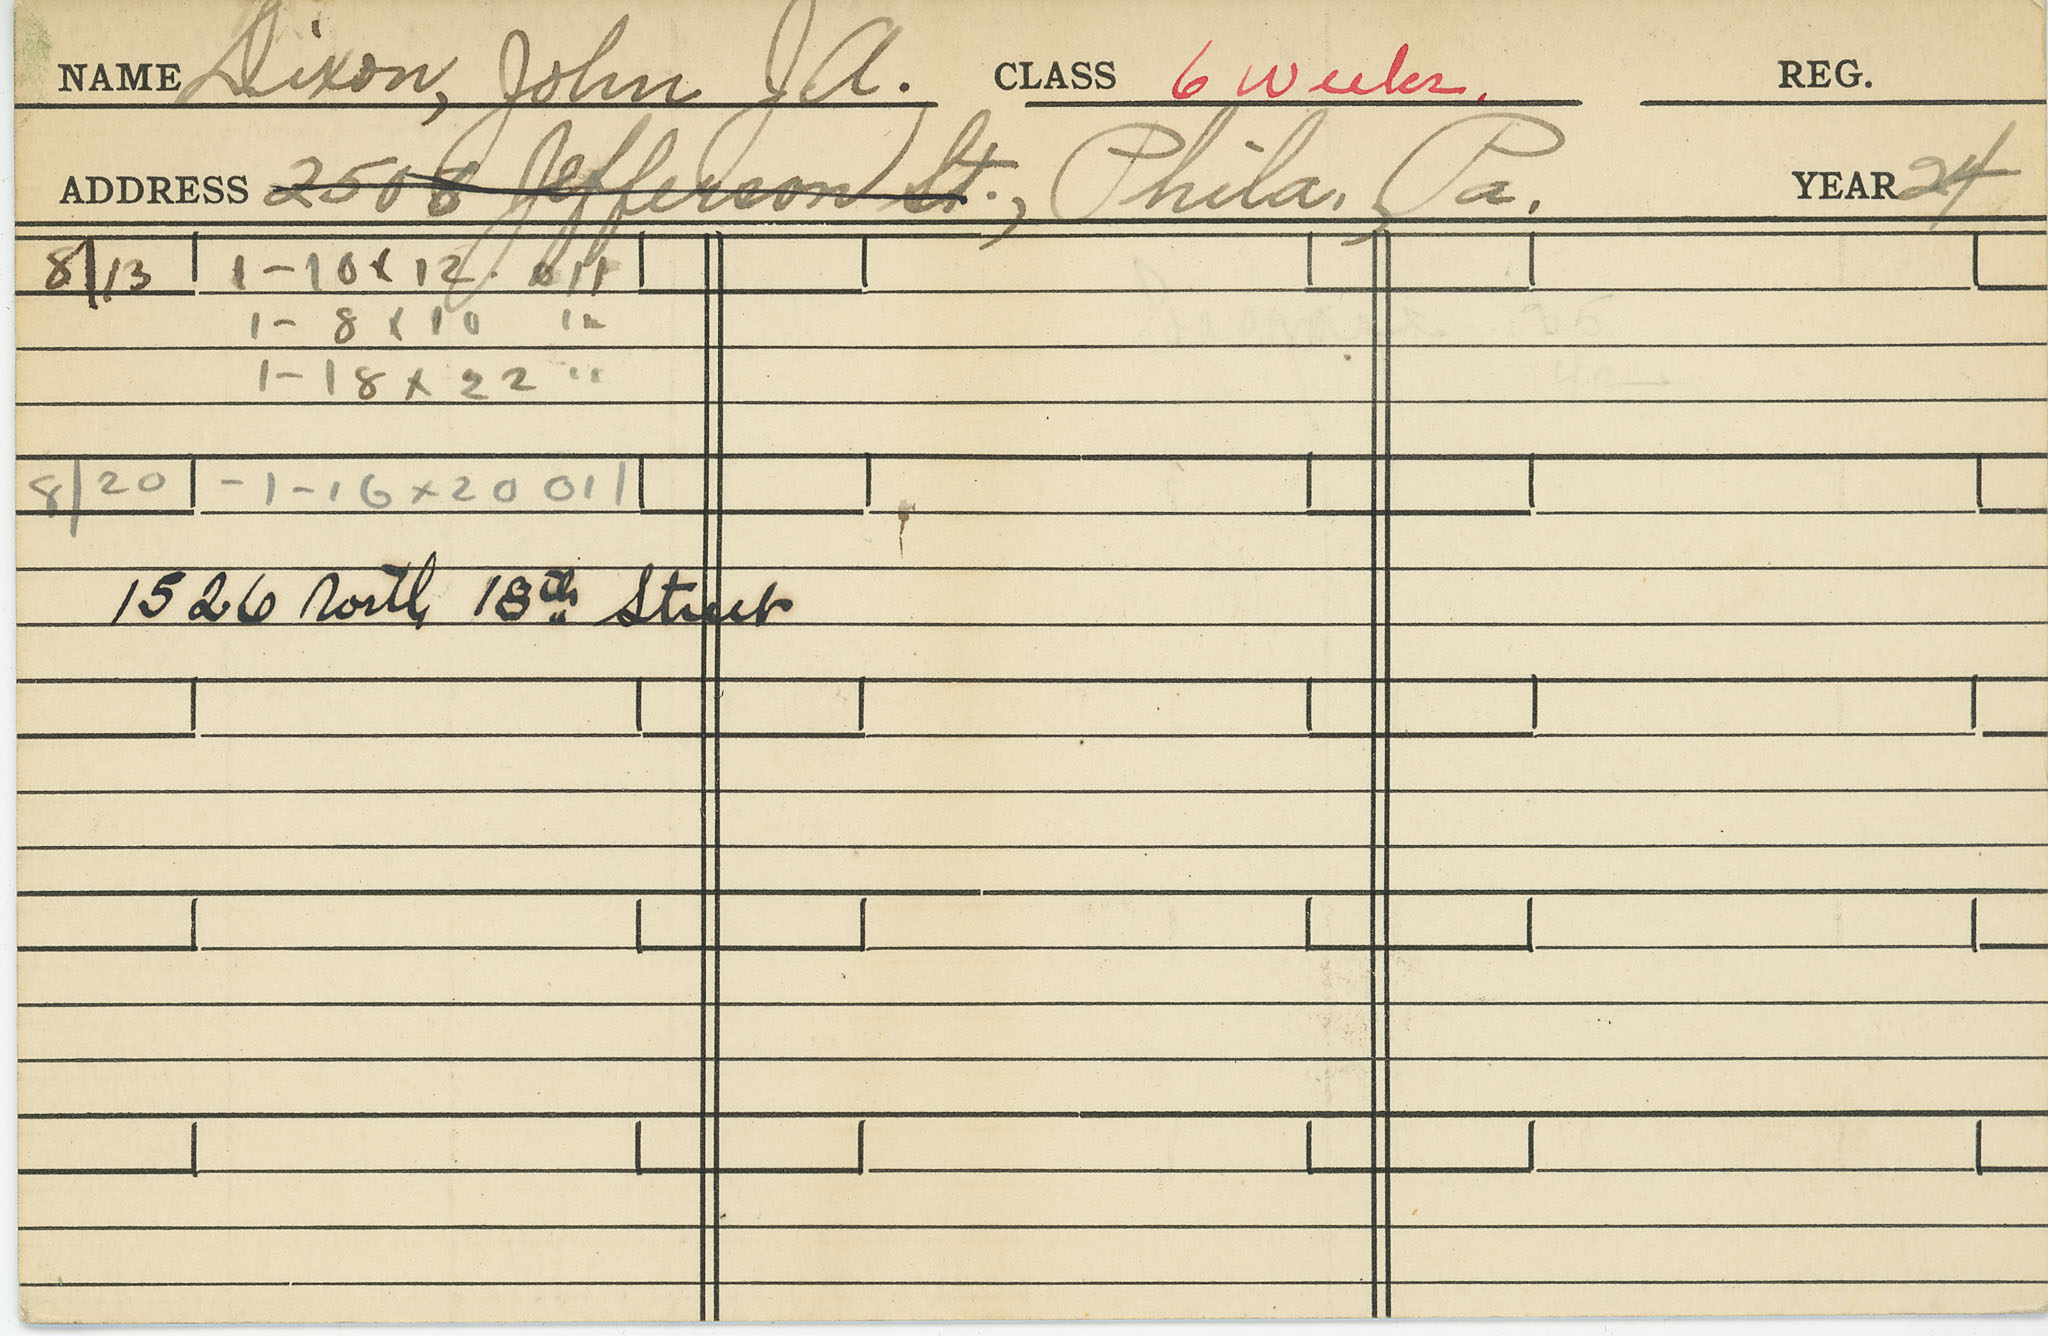 NAME Dixon, John J A. CLASS 6 weeks. REG.
ADDRESS 2508 Jefferson St., Phila, Pa. YEAR 24
8/13 1-10x12. oil
1-8x10 "
1-18x22 "
8/20 -1-16x20 oil
1526 North 18th Street